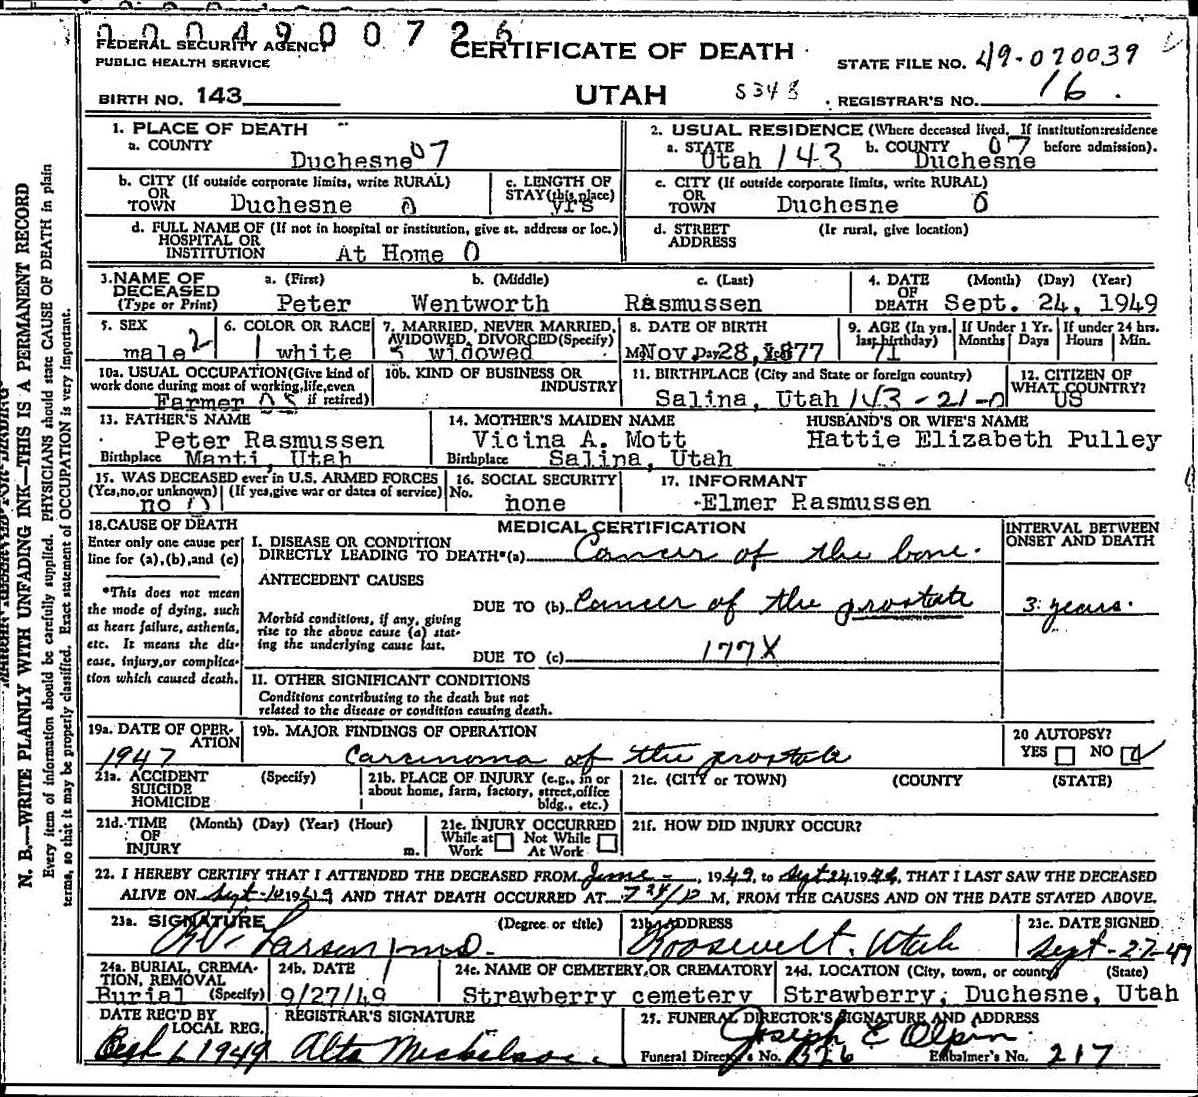 00049007 26
FEDERAL SECURITY AGENCY
PUBLIC HEALTH SERVICE
CERTIFICATE OF DEATH
STATE FILE NO. 49-070039
BIRTH NO. 143
UTAH
S348
REGISTRAR'S NO. 16
1. PLACE OF DEATH
a. COUNTY
Duchesne 07
2. USUAL RESIDENCE (Where deceased lived. If institution:residence before admission).
a. STATE Utah 143 b. COUNTY 07 Duchesne
b. CITY (If outside corporate limits, write RURAL)
OR TOWN Duchesne 0
c. LENGTH OF STAY (this place) yrs
c. CITY (If outside corporate limits, write RURAL)
OR TOWN Duchesne 0
d. FULL NAME OF (If not in hospital or institution, give st. address or loc.)
HOSPITAL OR INSTITUTION At Home 0
d. STREET ADDRESS (Ir rural, give location)
3. NAME OF DECEASED (Type or Print)
a. (First) b. (Middle) c. (Last)
Peter Wentworth Rasmussen
4. DATE OF DEATH (Month) (Day) (Year)
Sept. 24, 1949
5. SEX
male 2
6. COLOR OR RACE
1 white
7. MARRIED, NEVER MARRIED, WIDOWED, DIVORCED (Specify)
5 widowed
8. DATE OF BIRTH
Nov 28, 1877
9. AGE (In yrs. last birthday)
71
If Under 1 Yr. Months Days
If under 24 hrs. Hours Min.
10a. USUAL OCCUPATION (Give kind of work done during most of working, life, even if retired)
Farmer
10b. KIND OF BUSINESS OR INDUSTRY
11. BIRTHPLACE (City and State or foreign country)
Salina, Utah 143-21-0
12. CITIZEN OF WHAT COUNTRY?
US
13. FATHER'S NAME
Peter Rasmussen
Birthplace Manti, Utah
14. MOTHER'S MAIDEN NAME
Vicina A. Mott
Birthplace Salina, Utah
HUSBAND'S OR WIFE'S NAME
Hattie Elizabeth Pulley
15. WAS DECEASED ever in U.S. ARMED FORCES
(Yes, no, or unknown) (If yes, give war or dates of service)
no 0
16. SOCIAL SECURITY No.
none
17. INFORMANT
Elmer Rasmussen
18. CAUSE OF DEATH
Enter only one cause per line for (a), (b), and (c)
*This does not mean the mode of dying, such as heart failure, asthenia, etc. It means the disease, injury, or complication which caused death.
MEDICAL CERTIFICATION
INTERVAL BETWEEN ONSET AND DEATH
I. DISEASE OR CONDITION
DIRECTLY LEADING TO DEATH*(a) Cancer of the bone.
ANTECEDENT CAUSES
Morbid conditions, if any, giving rise to the above cause (a) stating the underlying cause last.
DUE TO (b) Cancer of the prostate
3 years.
DUE TO (c) 177X
II. OTHER SIGNIFICANT CONDITIONS
Conditions contributing to the death but not related to the disease or condition causing death.
19a. DATE OF OPERATION
1947
19b. MAJOR FINDINGS OF OPERATION
Carcinoma of the prostate
20 AUTOPSY?
YES NO
21a. ACCIDENT SUICIDE HOMICIDE (Specify)
21b. PLACE OF INJURY (e.g., in or about home, farm, factory, street, office bldg., etc.)
21c. (CITY or TOWN) (COUNTY) (STATE)
21d. TIME OF INJURY (Month) (Day) (Year) (Hour) m.
21e. INJURY OCCURRED
While at Work Not While At Work
21f. HOW DID INJURY OCCUR?
22. I HEREBY CERTIFY THAT I ATTENDED THE DECEASED FROM June -, 1949, to Sept 24 1949, THAT I LAST SAW THE DECEASED
ALIVE ON Sept-10 1949 AND THAT DEATH OCCURRED AT M, FROM THE CAUSES AND ON THE DATE STATED ABOVE.
23a. SIGNATURE (Degree or title)
R.V. Larsen M.D.
23b. ADDRESS
Roosevelt, Utah
23c. DATE SIGNED
Sept-27-49
24a. BURIAL, CREMATION, REMOVAL (Specify)
Burial
24b. DATE
9/27/49
24c. NAME OF CEMETERY, OR CREMATORY
Strawberry cemetery
24d. LOCATION (City, town, or county) (State)
Strawberry, Duchesne, Utah
DATE REC'D BY LOCAL REG.
1949
REGISTRAR'S SIGNATURE
Alta Mickelson
25. FUNERAL DIRECTOR'S SIGNATURE AND ADDRESS
Joseph E Olpin
Funeral Director's No. Embalmer's No. 217
N. B.—WRITE PLAINLY WITH UNFADING INK—THIS IS A PERMANENT RECORD
Every item of information should be carefully supplied. PHYSICIANS should state CAUSE OF DEATH in plain
terms, so that it may be properly classified. Exact statement of OCCUPATION is very important.